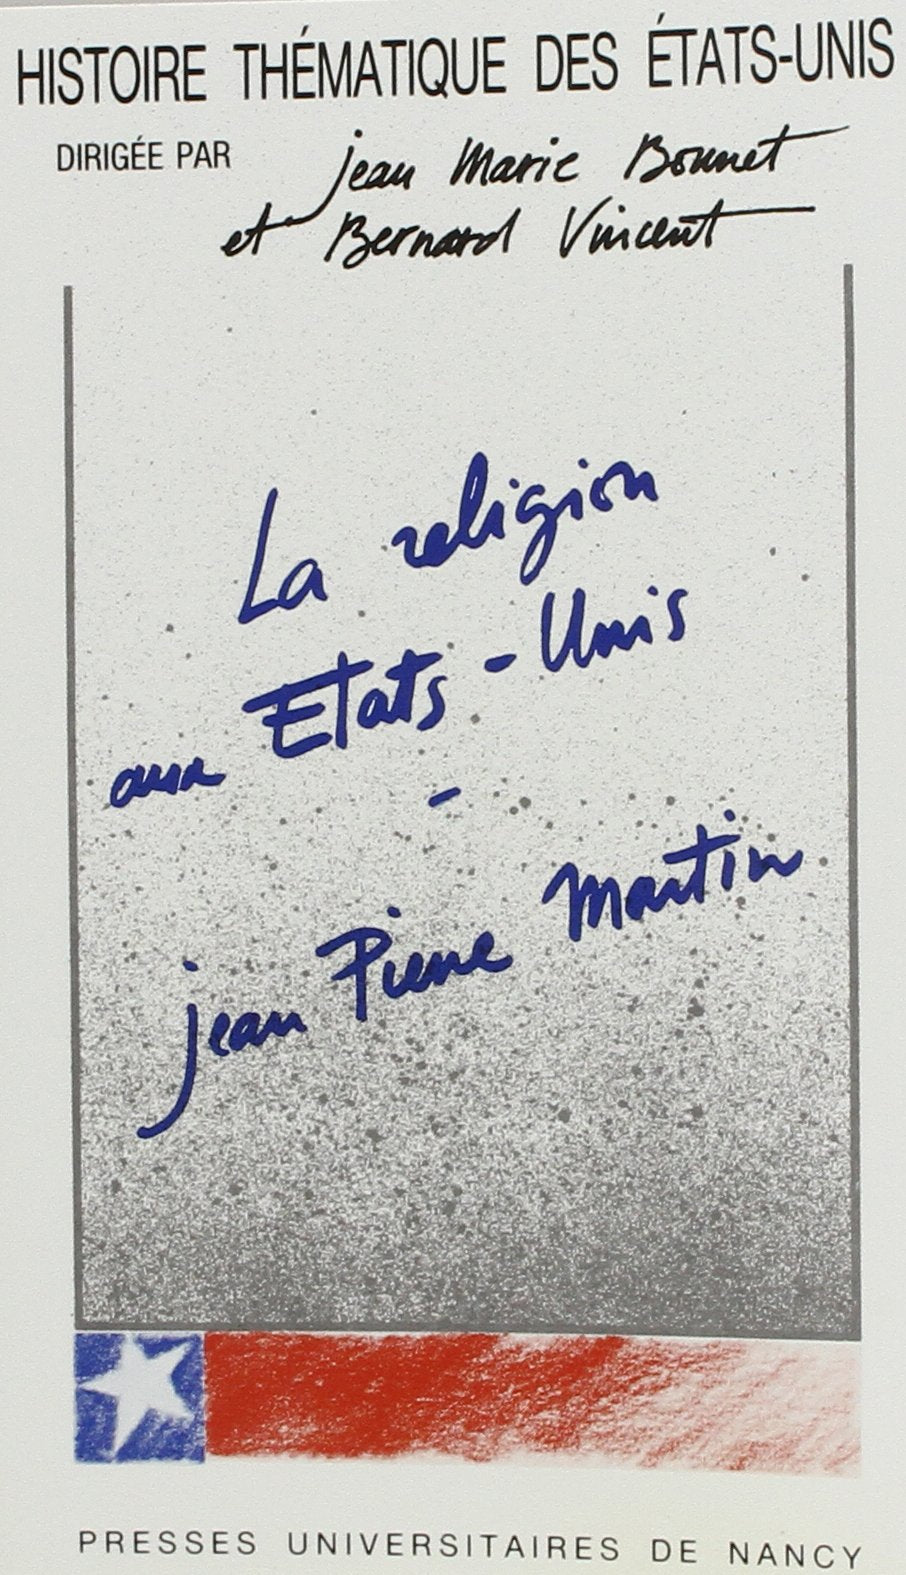 HISTOIRE THÉMATIQUE DES ÉTATS-UNIS
DIRIGÉE PAR Jean Marie Bonnet
et Bernard Vincent
La religion
aux Etats-Unis
-
Jean Pierre Martin
PRESSES UNIVERSITAIRES DE NANCY